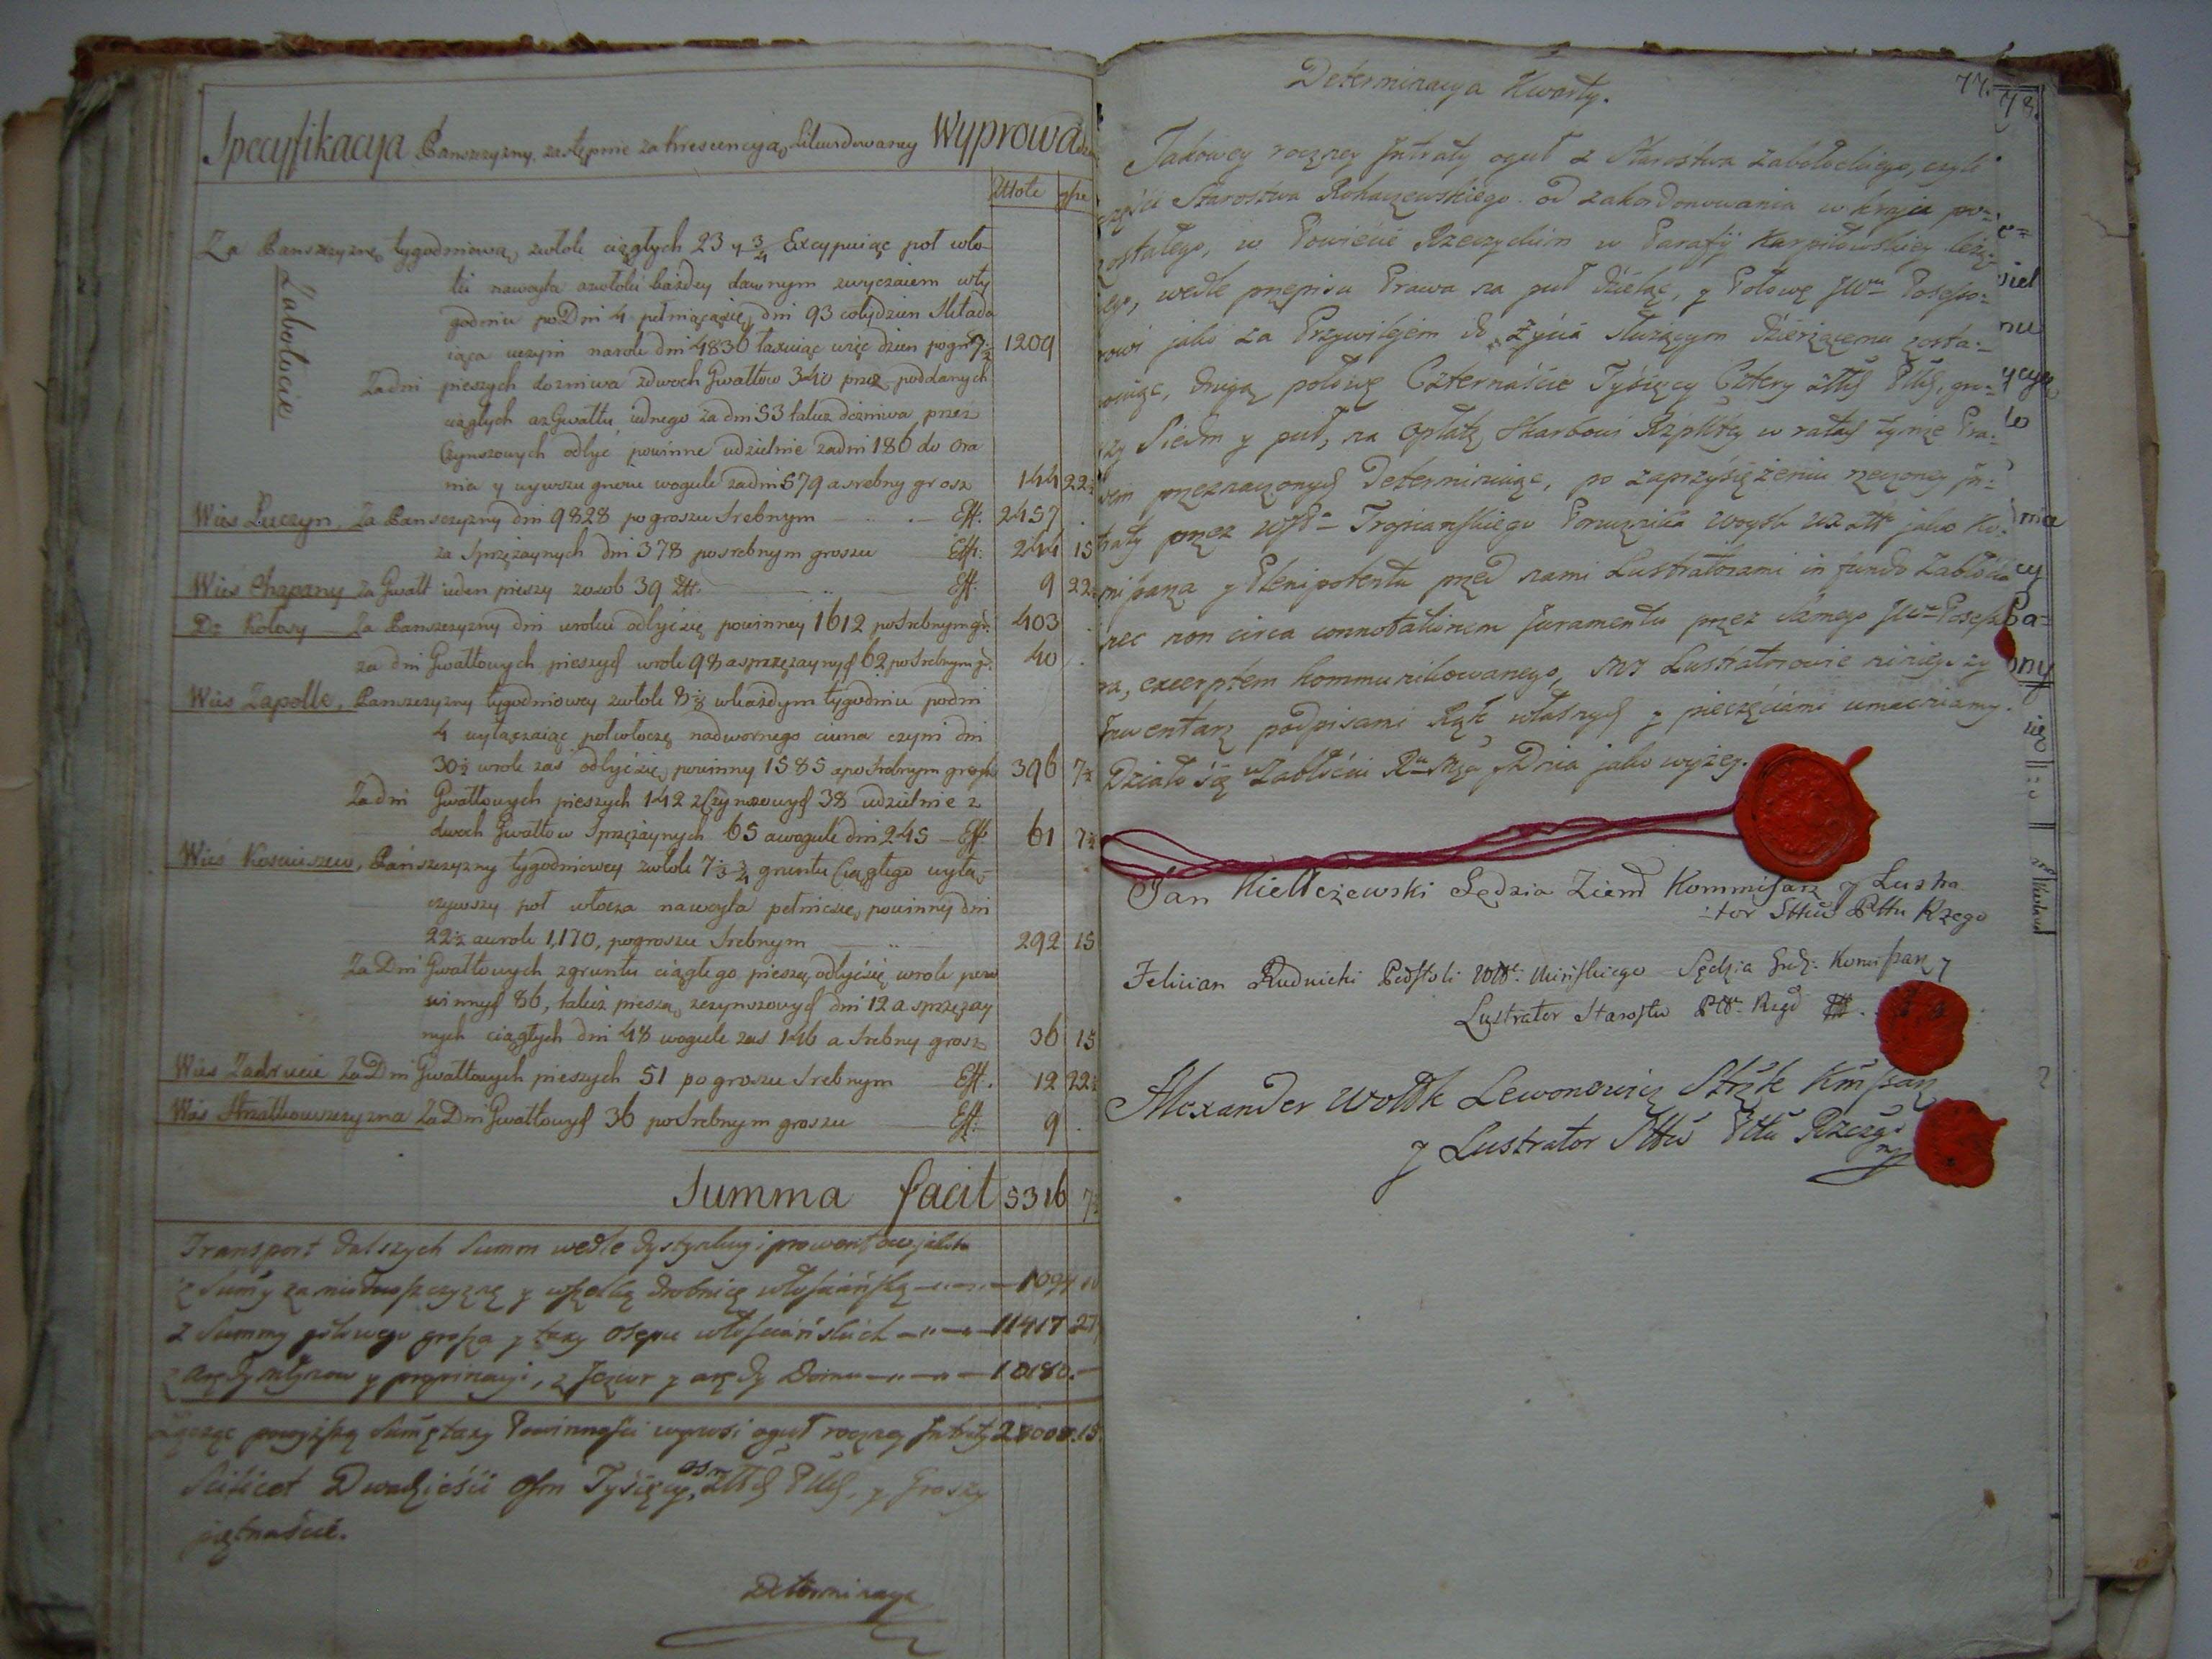 Specyfikacya Panszczyzny, zastępnie za Krescencyą Likwidowaney Wyprowa
Złote gre
Za Panszczyznę tygodniową, zwłok ciągłych 23 y 3/4 Excypuiąc poł wło-
ki na woyta a włoki każdey dawnym zwyczaiem w ty
godniu po Dni 4 pełniącą się, dni 93 co tydzien Składa
iąca uczyni na rok dni 4836 taxuiąc więc dzien po gr 7½ 1209
Zabołocie
Za dni pieszych do zniwa z dwoch Gwałtow 340 przez poddanych
ciągłych a z Gwałtu iednego za dni 53 takuż do żniwa przez
Czynszowych odbyć powinne udzielnie za dni 186 do ora
nia y wywozu gnoiu wogule za dni 579 a srebny grosz 144 22½
Wies Luczyn, Za Panszczyzny dni 9828 po groszu Srebnym Eff: 2457
za Sprzężaynych dni 378 po srebnym groszu Eff: 244 15
Wies Chapany Za Gwałt ieden pieszy z osob 39 Eff. 9 22½
Do Kolosy Za Panszczyzny dni w roku odbyć się powinney 1612 po Srebnym gr: 403
za dni Gwałtowych pieszych w rok 98 a sprzężaynych 62 po Srebnym gr: 40
Wies Zapole, Panszczyzny tygodniowey z włok 8 w każdym tygodniu po dni
4 wyłączaiąc poł włoczę na dwornego ciuna czyni dni
30½ w rok zaś odbyć się powinny 1585 a po Srebnym groszu 396 7½
Za dni Gwałtowych pieszych 142 z Czynszowych 38 udzielnie z
dwoch Gwałtow Sprzężaynych 65 a wogule dni 245 Eff. 61 7½
Wieś Kosciuszew, Pańszczyzny tygodniowey z włok 7 gruntu Ciągłego wyłą-
czywszy poł włoczą na woyta pełnić się powinny dni
22½ a w rok 1,170, po groszu Srebnym 292 15
Za Dni Gwałtowych z gruntu ciągłego pieszą odbyć się w rok powi
winnych 86, takuż pieszą z czynszowych dni 12 a sprzężay
nych ciągłych dni 48 wogule zas 146 a Srebny grosz 36 15
Wies Zadrucie Za Dni Gwałtowych pieszych 51 po groszu Srebnym Eff. 12 22½
Wies Strzałkowszczyzna Za Dni Gwałtowych 36 po Srebnym groszu Eff: 9
Summa facit 5316 7½
Transport dalszych Summ wedle dystynkcyi prowentow jakoto
z Summy gotowego grosza y taxy osepu włościańskich 11417 27
z arędy młynow y propinacyi, z Jezior y arędy Domu 10180.
Łącząc powyższą Summę taxy Powinności wynosi oguł roczney Intraty 28008.15
Scilicet Dwadzieście ośm Tysięcy, osm Złłch Pllch, y Groszy
piętnaście.
Determinacya
Determinacya Kwarty.
77. 78.
Takowey roczney Intraty oguł z Starostwa Zabołockiego, czyli
części Starostwa Rohaczewskiego od zakordonowania w kraju po=
zostałego, w Powiecie Rzeczyckim w Parafij Karpiłowskiey leżą=
cego, wedle przepisu Prawa na puł dzieląc, y Połowę JWu Posesso=
rowi jako za Przywilejem do Życia służącym dzierżącemu zosta=
wując, drugą połowę Czternaście Tysięcy Cztery złłch Pllch, gro=
szy Siedm y puł, na opłatę Skarbowi Rzpltey w ratach tymże Pra=
wem przeznaczonych Determinując, po zaprzysiężeniu rzeczoney In=
traty przez Troscianskiego Porucznika Woysk jako Ko=
missarza y Plenipotenta przed nami Lustratorami in fundo Zabłocia
nec non circa connotationem Juramentu przez Samego JWo Posesso
ra, excerptem kommunikowanego, my Lustratorowie ninieyszy
Inwentarz podpisami Rąk własnych y pieczęciami umacniamy.
Działo się w Zabłociu Dnia jako wyżey.
Jan Kiełczewski Sędzia Ziem Kommissarz y Lustra
:tor Sttw Pttu Rzego
Felician Rudnicki Podstoli Wdt: Minskiego Sędzia Komissarz y
Lustrator Starostw Pttu Rzgo
Alexander Wołk Lewonowicz
y Lustrator Sttw Pttu Rzeczgo